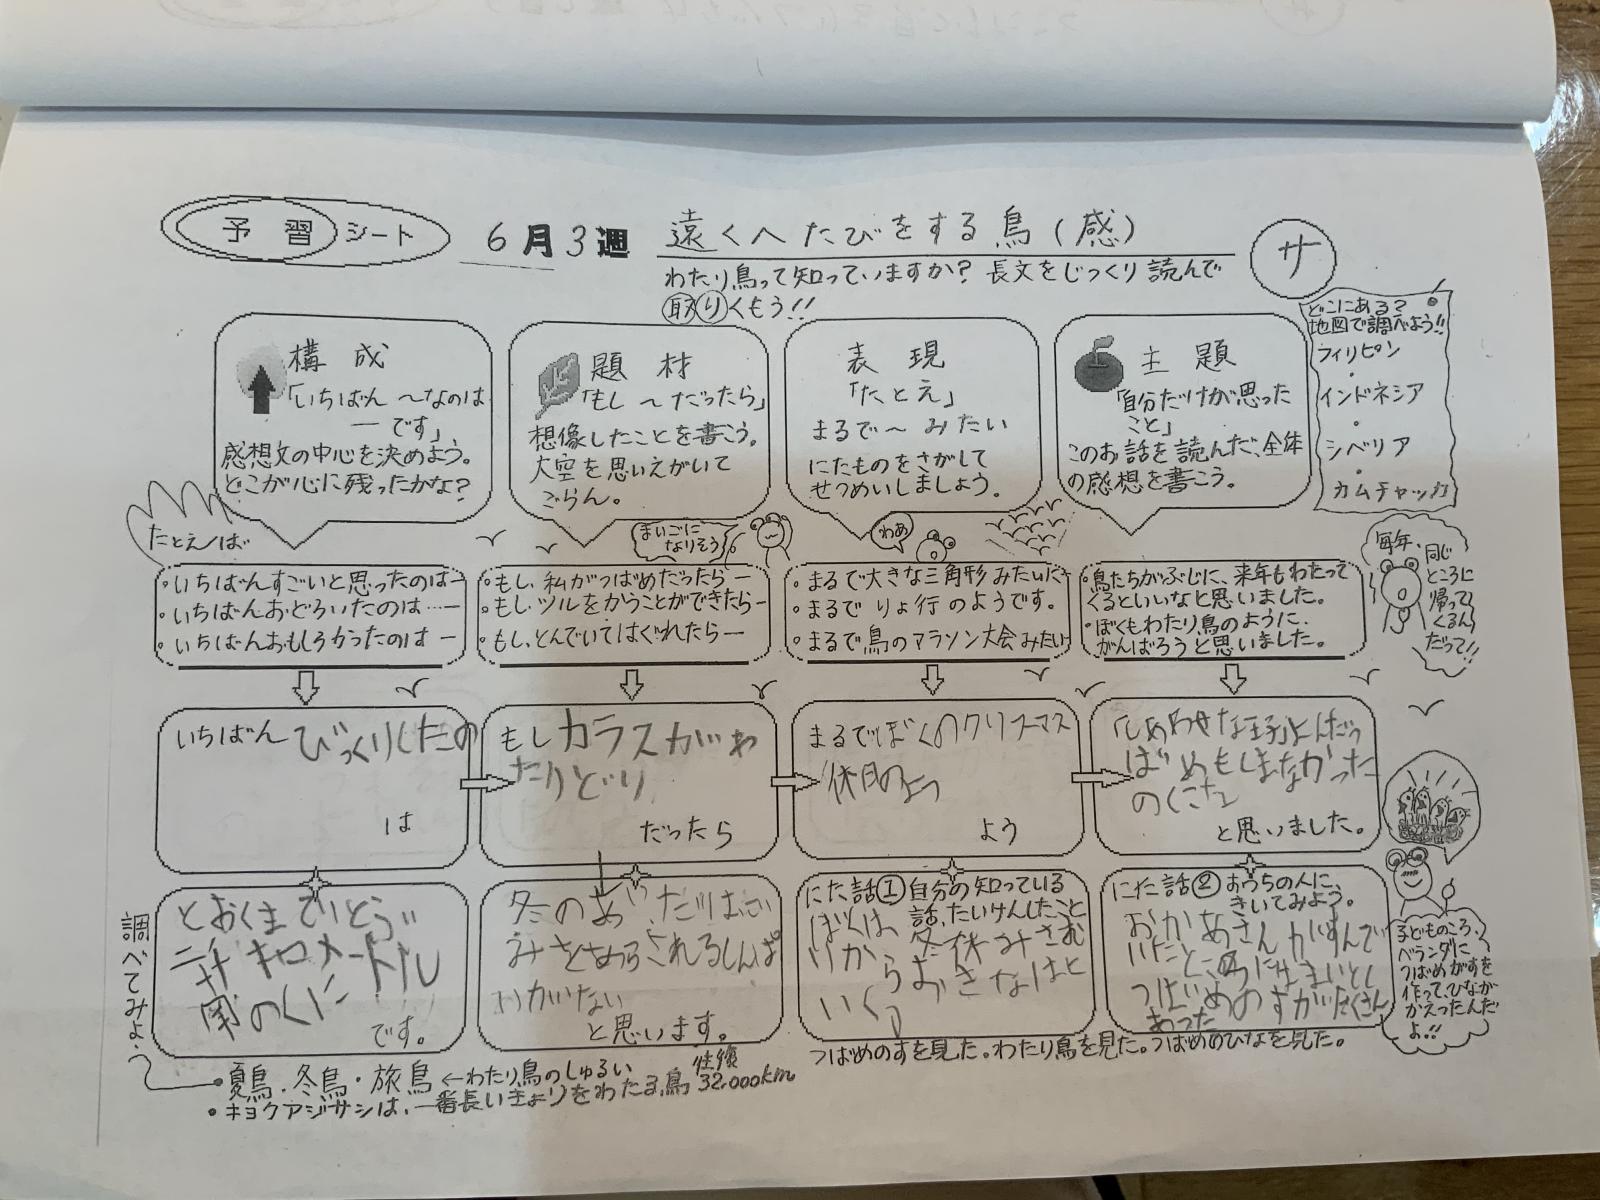 予習シート
6月3週
遠くへたびをする鳥(感)
サ
わたり鳥って知っていますか？長文をじっくり読んで
取りくもう!!
構成
「いちばん〜なのは
ーです」
感想文の中心を決めよう。
どこが心に残ったかな？
題材
「もし〜だったら」
想像したことを書こう。
大空を思いえがいて
ごらん。
表現
「たとえ」
まるで〜みたい
にたものをさがして
せつめいしましょう。
主題
「自分だけが思った
こと」
このお話を読んだ、全体
の感想を書こう。
どこにある？
地図で調べよう!!
フィリピン
・
インドネシア
・
シベリア
・
カムチャッカ
たとえば
・いちばんすごいと思ったのはー
・いちばんおどろいたのは…ー
・いちばんおもしろかったのはー
まいごに
なりそう
・もし、私がつばめだったらー
・もし、ツルをかうことができたらー
・もし、とんでいてはぐれたらー
わあ
・まるで大きな三角形みたいだ
・まるでりょ行のようです。
・まるで鳥のマラソン大会みたい
・鳥たちがぶじに、来年もわたって
くるといいなと思いました。
・ぼくもわたり鳥のように、
がんばろうと思いました。
毎年、
同じ
ところに
帰って
くるん
だって!!
いちばんびっくりしたの
は
もしカラスがわ
たりどり
だったら
まるでぼくのクリスマス
休日のよう
よう
「しあわせな王子」
ばめもしまなかった
のに
と思いました。
とおくまで
キロメートル
南のくに
です。
冬のあいだは
と思います。
にた話① 自分の知っている
話、たいけんしたこと
ぼくは、冬休みさむ
いからおきなわと
いく
にた話② おうちの人に、
きいてみよう。
おかあさんがすんで
いたところには
つばめのすがたくさん
あった
子どものころ、
ベランダに
つばめがすを
作って、ひなが
かえったんだ
よ!!
調べてみよう
・夏鳥、冬鳥・旅鳥←わたり鳥のしゅるい
・キョクアジサシは、一番長いきょりをわたる鳥 往復 32,000km
つばめのすを見た。わたり鳥を見た。つばめのひなを見た。